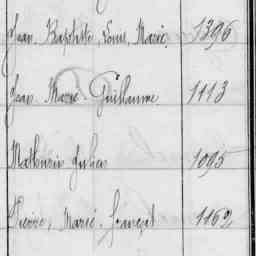 Jean Baptiste, Louis, Marie, 1396
Jean Marie Guillaume 1113
Mathurin Julien 1095
Pierre, Marie, françois 1162